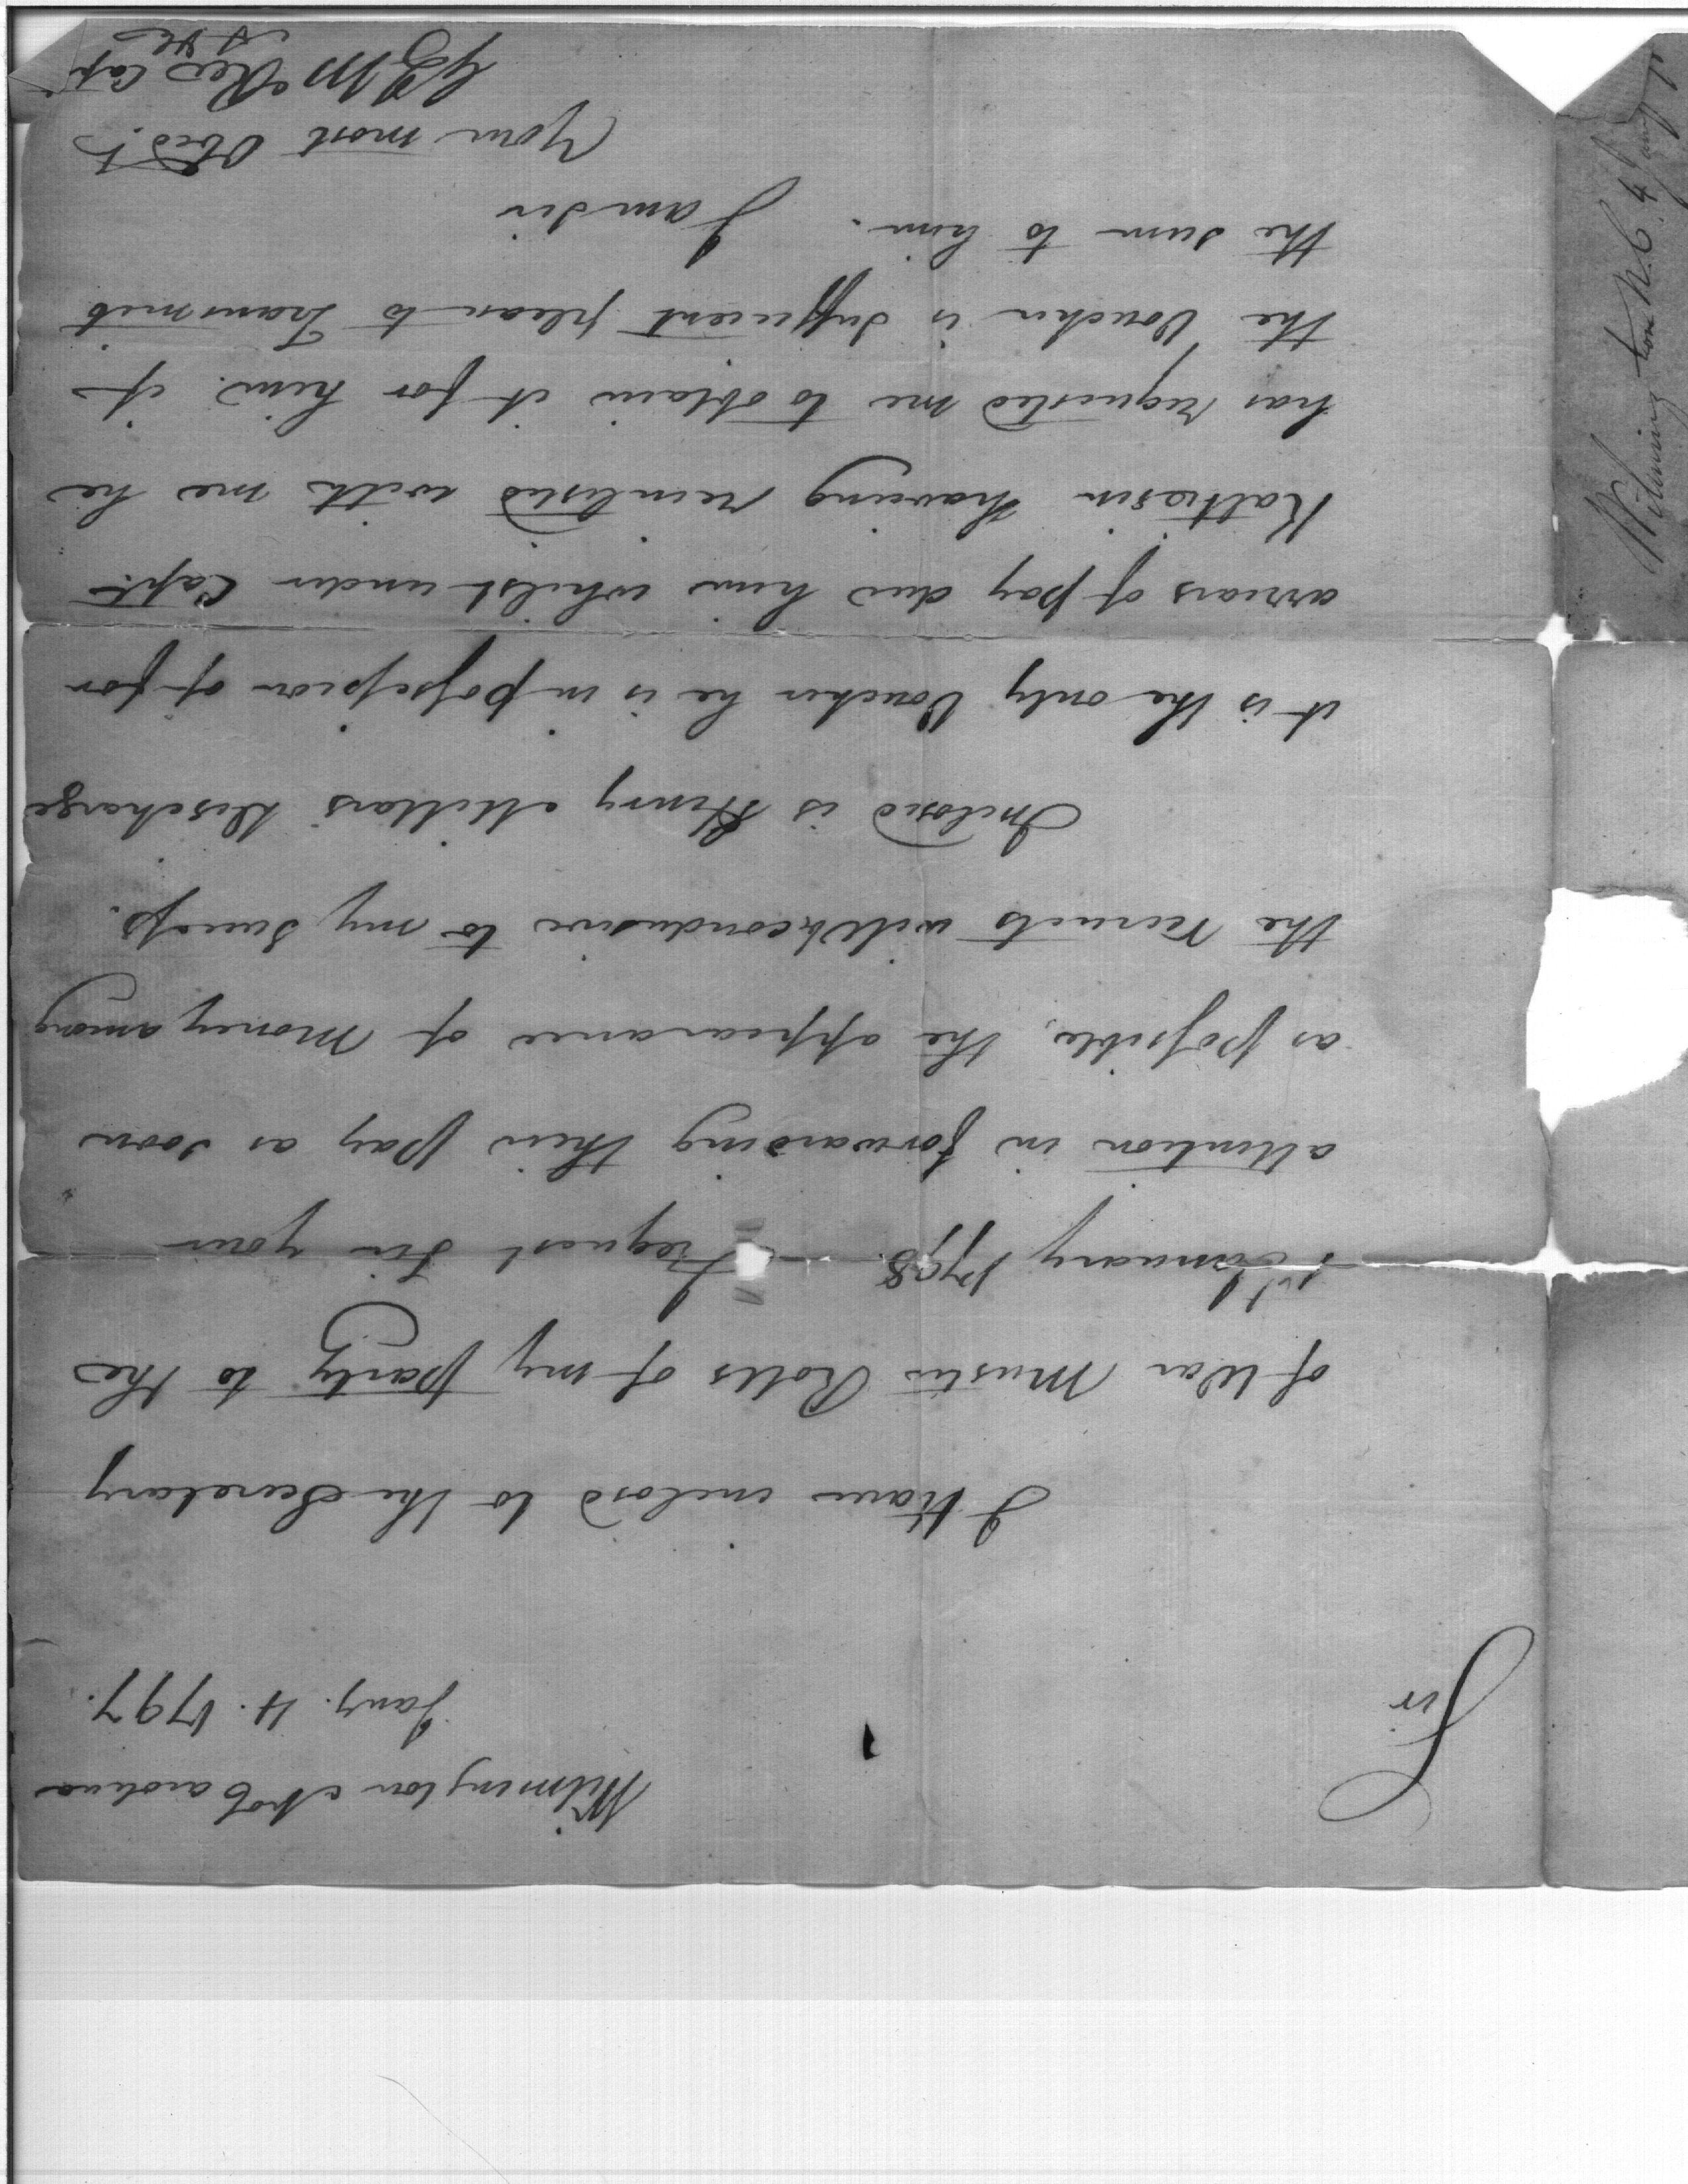 Wilmington No Carolina
Jany. 4. 1797.
Sir
I Have inclosd to the Secretary
of War Muster Rolls of my party to the
1st January 1798. I request Sir your
attention in forwarding their Pay as soon
as possible, the appearance of Money among
the recruits will be conducive to my success.
Inclosed is Henry Millars discharge
it is the only Voucher he is in possession of for
arriars of pay due him whilst under Capt.
Kalteisen having reinlisted with me he
has requested me to obtain it for him. if
the Voucher is sufficient please to transmit
the sum to him.
I am Sir
Your most Obed. t
McRee Capt
Wilmington N.C. 4 Jany